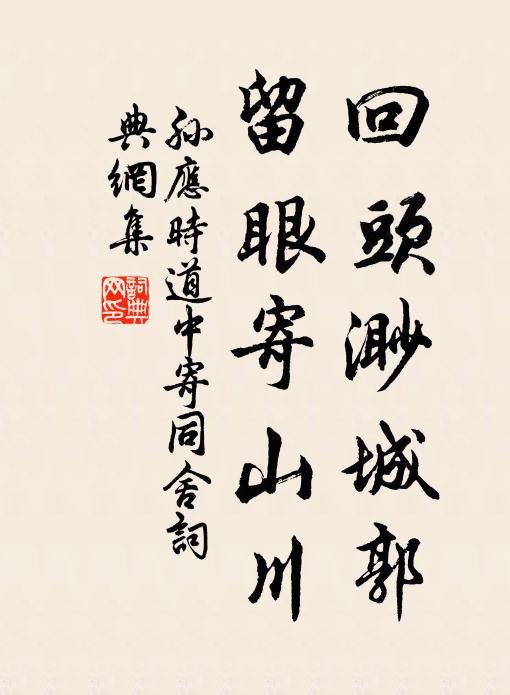 回頭渺城郭
留眼寄山川
孫應時道中寄同舍詞
典網集
詞典
网印